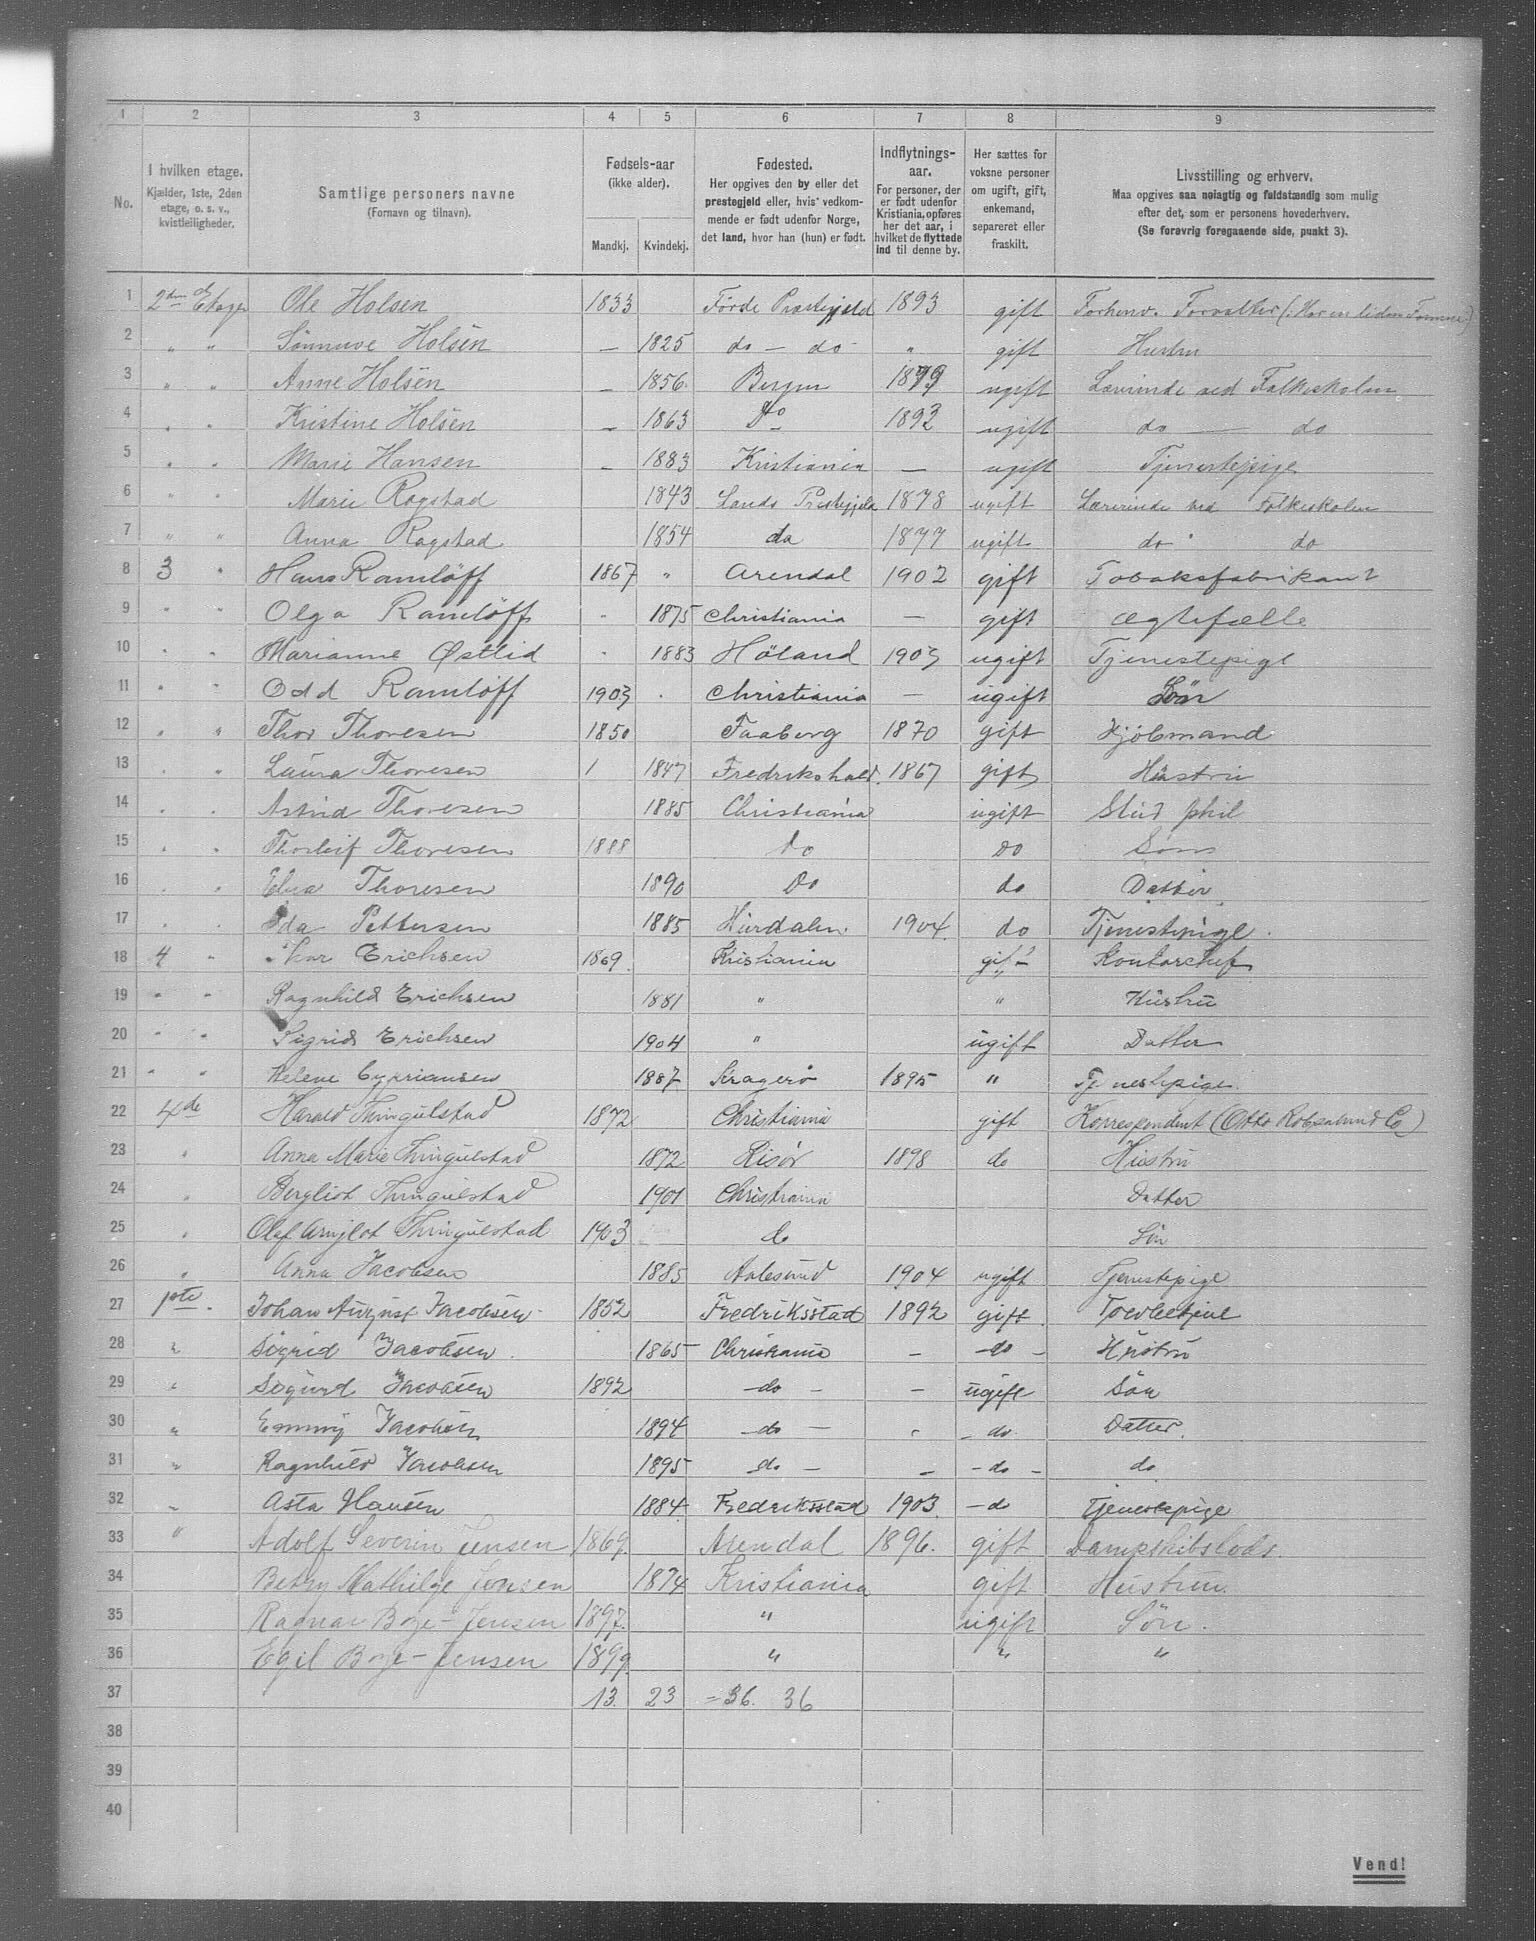 1 2 3 4 5 6 7 8 9
No. I hvilken etage. Kjælder, 1ste, 2den etage, o. s. v., kvistleiligheder. Samtlige personers navne (Fornavn og tilnavn). Fødsels-aar (ikke alder). Mandkj. Kvindekj. Fødested. Her opgives den by eller det prestegjeld eller, hvis vedkommende er født udenfor Norge, det land, hvor han (hun) er født. Indflytnings-aar. For personer, der er født udenfor Kristiania, opføres her det aar, i hvilket de flyttede ind til denne by. Her sættes for voksne personer om ugift, gift, enkemand, separeret eller fraskilt. Livsstilling og erhverv. Maa opgives saa nøiagtig og fuldstændig som mulig efter det, som er personens hovederhverv. (Se forøvrig foregaaende side, punkt 3).
1 2den Etage Ole Holsen 1833 Førde Præstegjeld 1893 gift Forhenv. Forvalter (: Har en liden Formue)
2 " " Sønneve Holsen — 1825 do — do " gift Hustru
3 " " Anne Holsen — 1856 Bergen 1879 ugift Lærerinde ved Folkeskolen
4 " " Kristine Holsen — 1863 do 1892 ugift do — do
5 " " Marie Hansen — 1883 Kristiania — ugift Tjenestepige
6 " " Marie Rogstad 1843 Lands Prestegjeld 1878 ugift Lærerinde ved Folkeskolen
7 " " Anna Rogstad 1854 do 1877 ugift do " do
8 3 " Hans Ramløff 1867 " Arendal 1902 gift Tobaksfabrikant
9 " " Olga Ramløff " 1875 Christiania — gift Ægtefælle
10 " " Marianne Østlid " 1883 Høland 1903 ugift Tjenestepige
11 " " Odd Ramløff 1903 " Christiania — ugift Søn
12 " " Thor Thoresen 1850 Faaberg 1870 gift Kjøbmand
13 " " Laura Thoresen 1847 Fredrikshald 1867 gift Hustru
14 " " Astrid Thoresen 1885 Christiania ugift Stud phil
15 " " Thorleif Thoresen 1888 do Do Søn
16 " " Elna Thoresen 1890 Do do Datter
17 " " Ida Pettersen 1885 Hurdalen 1904 do Tjenestepige
18 4 " Ivar Erichsen 1869 Kristiania gift Kontorchef
19 " " Ragnhild Erichsen 1881 " " Hustru
20 " " Sigrid Erichsen 1904 " ugift Datter
21 " " Helene Cypriansen 1887 Kragerø 1895 " Tjenestepige
22 4de Harald Thingulstad 1872 Christiania gift Korrespondent (Otto Robsahm & Co)
23 " Anna Marie Thingulstad 1872 Risør 1898 do Hustru
24 " Bergliot Thingulstad 1901 Christiania Datter
25 " Olaf Arnljot Thingulstad 1903 do Søn
26 " Anna Jacobsen 1885 Aalesund 1904 ugift Tjenestepige
27 1ste. Johan August Jacobsen 1852 Fredriksstad 1892 gift Toldbetjent
28 " Sigrid Jacobsen 1865 Christiania — do — Hustru
29 " Sigurd Jacobsen 1892 do — — ugift Søn
30 " Emmy Jacobsen 1894 do — " — do Datter
31 " Ragnhild Jacobsen 1895 do — — — do — do
32 " Asta Hansen 1884 Fredriksstad 1903 — do Tjenestepige
33 " Adolf Severin Jensen 1869 Arendal 1896. gift Dampskibslods.
34 Betzy Mathilge Jensen 1874 Kristiania gift Hustru
35 Ragnar Boye-Jensen 1897. " ugift Søn.
36 Egil Boye-Jensen 1899 " " "
37 13. 23 = 36. 36
38
39
40
Vend!